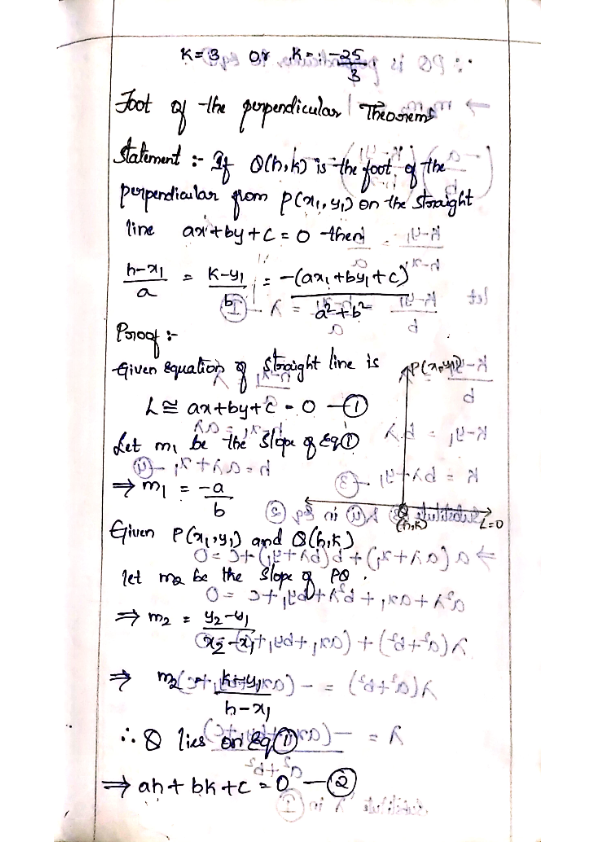 K=3 or K = -25/3
Foot of the perpendicular Theorem
Statement :- If Q(h,k) is the foot of the
perpendicular from P(x₁, y₁) on the straight
line ax+by+c=0 then
h-x₁/a = k-y₁/b = -(ax₁+by₁+c)/a²+b²
Proof :-
Given equation of straight line is
L ≅ ax+by+c=0 —①
Let m₁ be the slope of Eq①
⇒ m₁ = -a/b
P(x₁,y₁)
Q
(h,k)
L=0
Given P(x₁,y₁) and Q(h,k)
let m₂ be the slope of PQ.
⇒ m₂ = y₂-y₁/x₂-x₁
⇒ m₂ = k-y₁/h-x₁
∴ Q lies on Eq①
⇒ ah+bk+c=0 —②